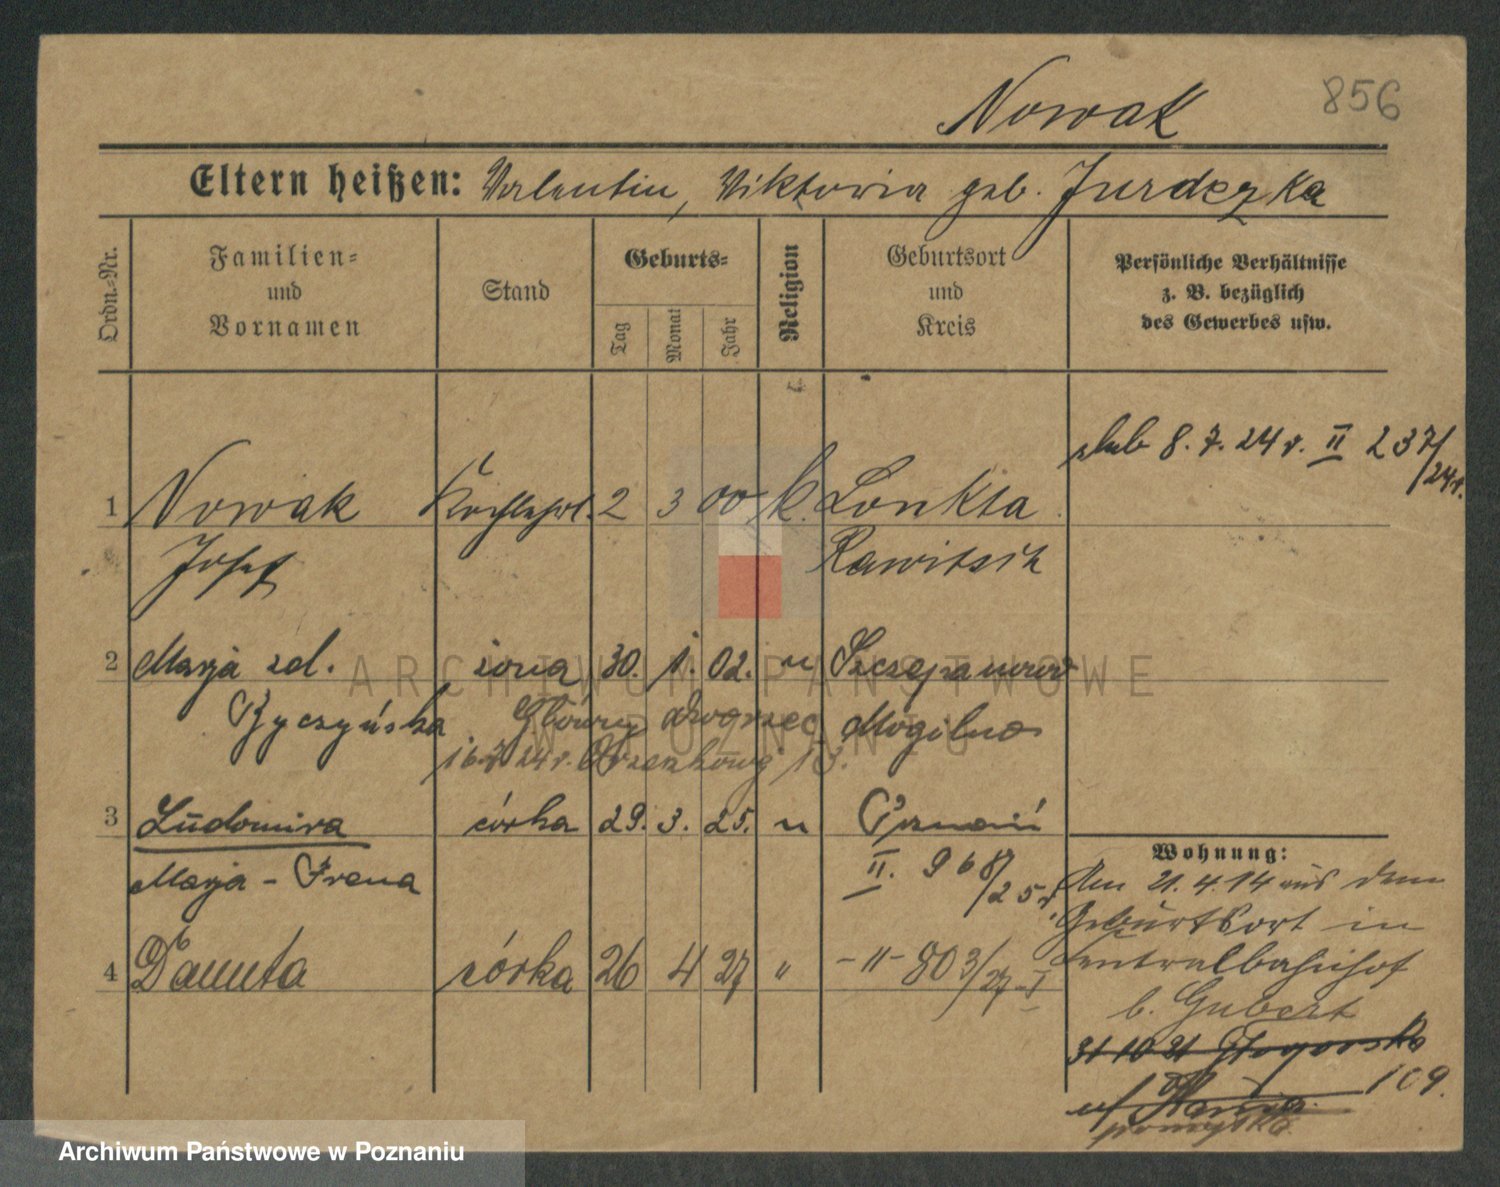 856
Nowak
Eltern heißen: Valentin, Viktoria geb. Jurdczka
Ordn.-Nr.
Familien-
und
Vornamen
Stand
Geburts-
Tag
Monat
Jahr
Religion
Geburtsort
und
Kreis
Persönliche Verhältnisse
z. B. bezüglich
des Gewerbes usw.
ślub 8.7.24 r. II 237/24 r.
1 Nowak 2 3 00 k. Lonkta
Josef Rawitsch
2 Marja zd. żona 30. 1. 02. " Szczepanowo
Życzyńska Główny dworzec Mogilno
24 r. 13.
3 Ludomira córka 29. 3. 25. " Poznań
Marja - Irena II. 968/25 r.
4 Danuta córka 26 4 27 " -"- 803/27-I
Wohnung:
Am 21.4.14 aus dem
Geburtsort in
Centralbahnhof
b. Gubert
31 10 21 Głogowska
109.
ARCHIWUM PAŃSTWOWE
W POZNANIU
Archiwum Państwowe w Poznaniu